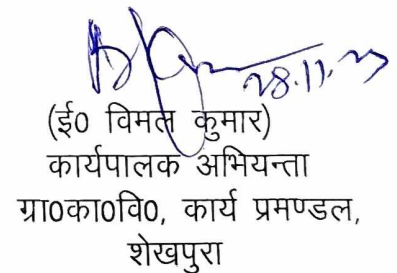 28.11.23
(ई0 विमल कुमार)
कार्यपालक अभियन्ता
ग्रा0का0वि0, कार्य प्रमण्डल,
शेखपुरा